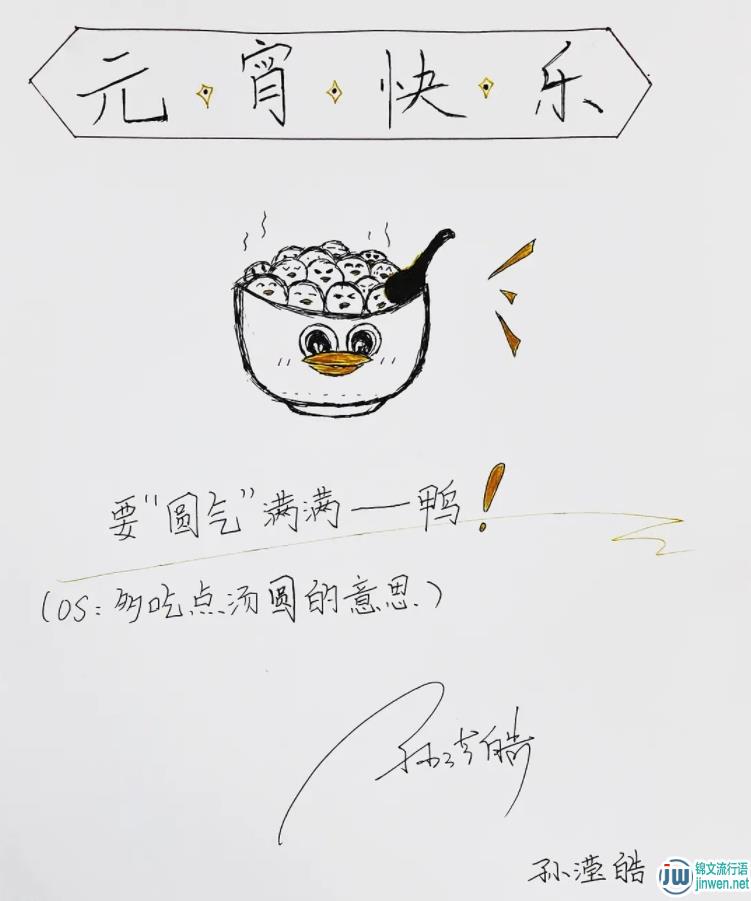 元宵快乐
要“圆气”满满——鸭！
（OS：多吃点汤圆的意思.）
孙滢皓
孙滢皓
锦文流行语
jinwen.net